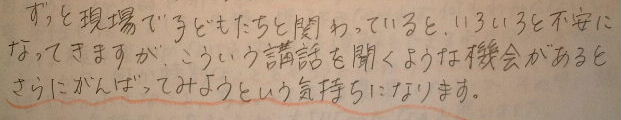 ずっと現場で子どもたちと関わっていると、いろいろと不安に
なってきますが、こういう講話を聞くような機会があると
さらにがんばってみようという気持ちになります。